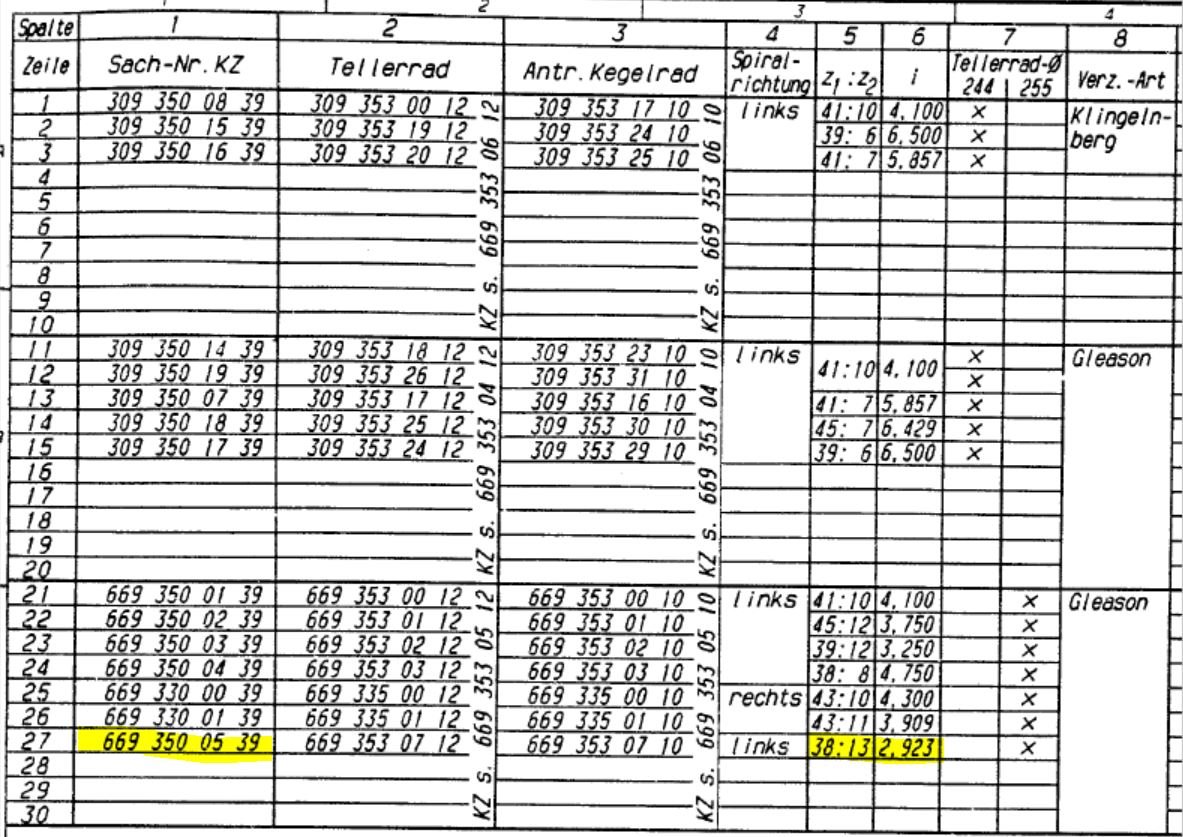 2 3 4
Spalte 1 2 3 4 5 6 7 8
Zeile Sach-Nr. KZ Tellerrad Antr. Kegelrad Spiral-richtung z1:z2 i Tellerrad-Ø 244 255 Verz.-Art
1 309 350 08 39 309 353 00 12 309 353 17 10 links 41:10 4,100 × Klingeln-
2 309 350 15 39 309 353 19 12 309 353 24 10 39: 6 6,500 × berg
3 309 350 16 39 309 353 20 12 309 353 25 10 41: 7 5,857 ×
4
5
6
7
8
9
10
KZ s. 669 353 06 12
KZ s. 669 353 06 10
11 309 350 14 39 309 353 18 12 309 353 23 10 links 41:10 4,100 × Gleason
12 309 350 19 39 309 353 26 12 309 353 31 10 ×
13 309 350 07 39 309 353 17 12 309 353 16 10 41: 7 5,857 ×
14 309 350 18 39 309 353 25 12 309 353 30 10 45: 7 6,429 ×
15 309 350 17 39 309 353 24 12 309 353 29 10 39: 6 6,500 ×
16
17
18
19
20
KZ s. 669 353 04 12
KZ s. 669 353 04 10
21 669 350 01 39 669 353 00 12 669 353 00 10 links 41:10 4,100 × Gleason
22 669 350 02 39 669 353 01 12 669 353 01 10 45:12 3,750 ×
23 669 350 03 39 669 353 02 12 669 353 02 10 39:12 3,250 ×
24 669 350 04 39 669 353 03 12 669 353 03 10 38: 8 4,750 ×
25 669 330 00 39 669 335 00 12 669 335 00 10 rechts 43:10 4,300 ×
26 669 330 01 39 669 335 01 12 669 335 01 10 43:11 3,909 ×
27 669 350 05 39 669 353 07 12 669 353 07 10 links 38:13 2,923 ×
28
29
30
KZ s. 669 353 05 12
KZ s. 669 353 05 10